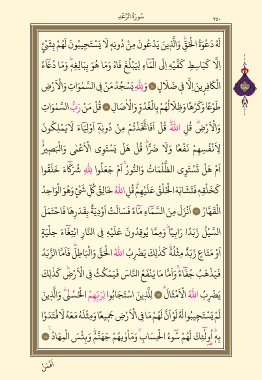 سُورَةُ الرَّعْدِ
٢٥٠
لَهُ دَعْوَةُ الْحَقِّ وَالَّذِينَ يَدْعُونَ مِنْ دُونِهِ لَا يَسْتَجِيبُونَ لَهُمْ بِشَيْءٍ
إِلَّا كَبَاسِطِ كَفَّيْهِ إِلَى الْمَاءِ لِيَبْلُغَ فَاهُ وَمَا هُوَ بِبَالِغِهِ وَمَا دُعَاءُ
الْكَافِرِينَ إِلَّا فِي ضَلَالٍ وَلِلَّهِ يَسْجُدُ مَنْ فِي السَّمٰوَاتِ وَالْأَرْضِ
طَوْعًا وَكَرْهًا وَظِلَالُهُمْ بِالْغُدُوِّ وَالْآصَالِ قُلْ مَنْ رَبُّ السَّمٰوَاتِ
وَالْأَرْضِ قُلِ اللّٰهُ قُلْ أَفَاتَّخَذْتُمْ مِنْ دُونِهِ أَوْلِيَاءَ لَا يَمْلِكُونَ
لِأَنْفُسِهِمْ نَفْعًا وَلَا ضَرًّا قُلْ هَلْ يَسْتَوِي الْأَعْمٰى وَالْبَصِيرُ
أَمْ هَلْ تَسْتَوِي الظُّلُمَاتُ وَالنُّورُ أَمْ جَعَلُوا لِلّٰهِ شُرَكَاءَ خَلَقُوا
كَخَلْقِهِ فَتَشَابَهَ الْخَلْقُ عَلَيْهِمْ قُلِ اللّٰهُ خَالِقُ كُلِّ شَيْءٍ وَهُوَ الْوَاحِدُ
الْقَهَّارُ أَنْزَلَ مِنَ السَّمَاءِ مَاءً فَسَالَتْ أَوْدِيَةٌ بِقَدَرِهَا فَاحْتَمَلَ
السَّيْلُ زَبَدًا رَابِيًا وَمِمَّا يُوقِدُونَ عَلَيْهِ فِي النَّارِ ابْتِغَاءَ حِلْيَةٍ
أَوْ مَتَاعٍ زَبَدٌ مِثْلُهُ كَذٰلِكَ يَضْرِبُ اللّٰهُ الْحَقَّ وَالْبَاطِلَ فَأَمَّا الزَّبَدُ
فَيَذْهَبُ جُفَاءً وَأَمَّا مَا يَنْفَعُ النَّاسَ فَيَمْكُثُ فِي الْأَرْضِ كَذٰلِكَ
يَضْرِبُ اللّٰهُ الْأَمْثَالَ لِلَّذِينَ اسْتَجَابُوا لِرَبِّهِمُ الْحُسْنٰى وَالَّذِينَ
لَمْ يَسْتَجِيبُوا لَهُ لَوْ أَنَّ لَهُمْ مَا فِي الْأَرْضِ جَمِيعًا وَمِثْلَهُ مَعَهُ لَافْتَدَوْا
بِهِ أُولٰئِكَ لَهُمْ سُوءُ الْحِسَابِ وَمَأْوٰيهُمْ جَهَنَّمُ وَبِئْسَ الْمِهَادُ
أَفَمَنْ